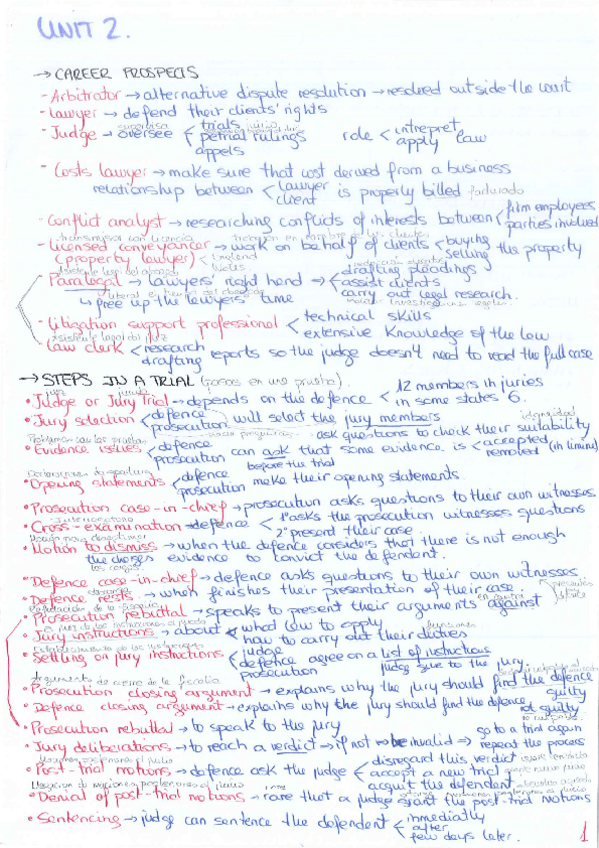 UNIT 2.
→ CAREER PROSPECTS
- Arbitrator → alternative dispute resolution → resolved outside the court
- Lawyer → defend their clients' rights
supervisa juicio
- Judge → oversee < trials
petrial rulings role < intrepret law
appels apply
- Costs lawyer → make sure that cost derived from a business
relationship between < lawyer is properly billed facturado
client
- Conflict analyst → researching conflicts of interests between < film employees
parties involved
transmisor con licencia
- Licensed conveyancer → work on behalf of clients < buying the property
(property lawyer) selling
asistente legal del abogado
- Paralegal → lawyers' right hand → drafting pleadings
assist clients
↳ free up the lawyers' time carry out legal research.
- Litigation support professional < technical skills
extensive knowledge of the law
asistente legal del juez
- Law clerk < research reports so the judge doesn't need to read the full case
drafting
→ STEPS IN A TRIAL (pasos en una prueba).
juez jurado
• Judge or Jury Trial → depends on the defence < 12 members in juries
in some states 6.
• Jury selection < defence will select the jury members
prosecution ask questions to check their suitability
• Evidence issues < defence can ask that some evidence is < accepted
prosecution before the trial removed (in limine)
• Opening statements < defence make their opening statements.
prosecution
• Prosecution case-in-chief → prosecution asks questions to their own witnesses.
• Cross-examination → defence < 1º asks the prosecution witnesses questions
2º present their case.
• Motion to dismiss → when the defence considers that there is not enough
the charges evidence to convict the defendant.
los cargos
• Defence case-in-chief → defence asks questions to their own witnesses.
• Defence rests → when finishes their presentation of their case.
• Prosecution rebuttal → speaks to present their arguments against
• Jury instructions → about < what law to apply
how to carry out their duties
• Settling on jury instructions < judge
defence agree on a list of instructions
prosecution judge give to the jury.
• Prosecution closing argument → explains why the jury should find the defence
guilty
• Defence closing argument → explains why the jury should find the defence
not guilty
• Prosecution rebuttal → to speak to the jury
• Jury deliberations → to reach a verdict → if not → be invalid → go to a trial again
repeat the process
• Post-trial motions → defence ask the judge < disregard this verdict
accept a new trial
acquit the defendent
• Denial of post-trial motions → rare that a judge grant the post-trial motions
• Sentencing → judge can sentence the defendent < inmediatly
after
few days later.
1